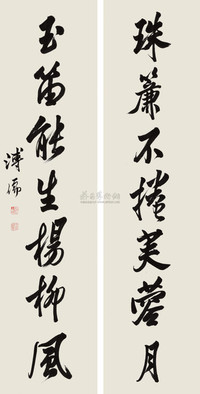 珠簾不捲芙蓉月
玉笛能生楊柳風
溥儒